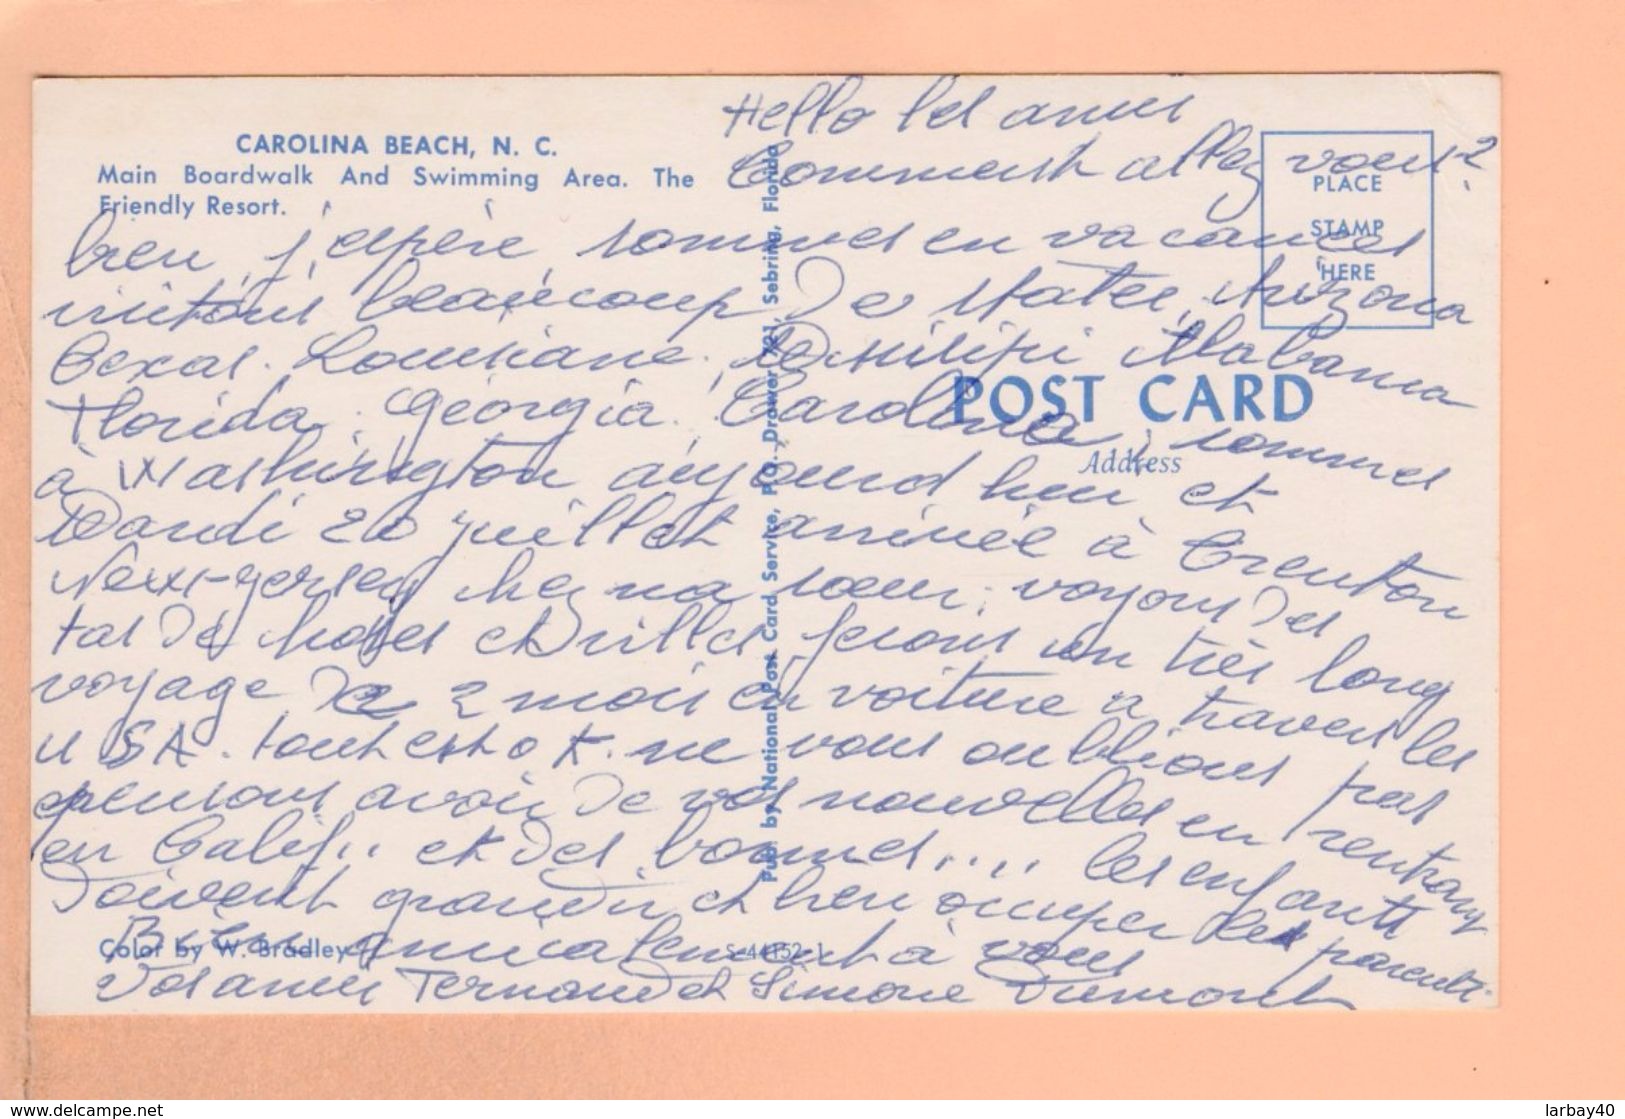 CAROLINA BEACH, N. C.
Main Boardwalk And Swimming Area. The
Friendly Resort.
Hello les amis
Comment allez vous?
bien, j'espère, sommes en vacances
visitons beaucoup de states, Arizona
Texas. Louisiane. Missisipi Alabama
Florida. Géorgia. Carolina, sommes
à Washington aujourd'hui et
Mardi 20 juillet arrivée à Trenton
New-Jersey chez ma sœur, voyons des
tas de choses et villes ferons un très long
voyage de 2 mois en voiture a travers les
USA. tout est ok. ne vous oublions pas
pensons avoir de vos nouvelles en rentrant
en Calif.. et des bonnes.... les enfants
doivent grandir et bien occuper les parents.
Bien amicalement à vous
Vos amis Fernand et Simone Dumont
PLACE
STAMP
HERE
POST CARD
Address
Pub. by National Post Card Service, P.O. Drawer 721, Sebring, Florida
Color by W. Bradley
S-44152-1
delcampe.net
larbay40